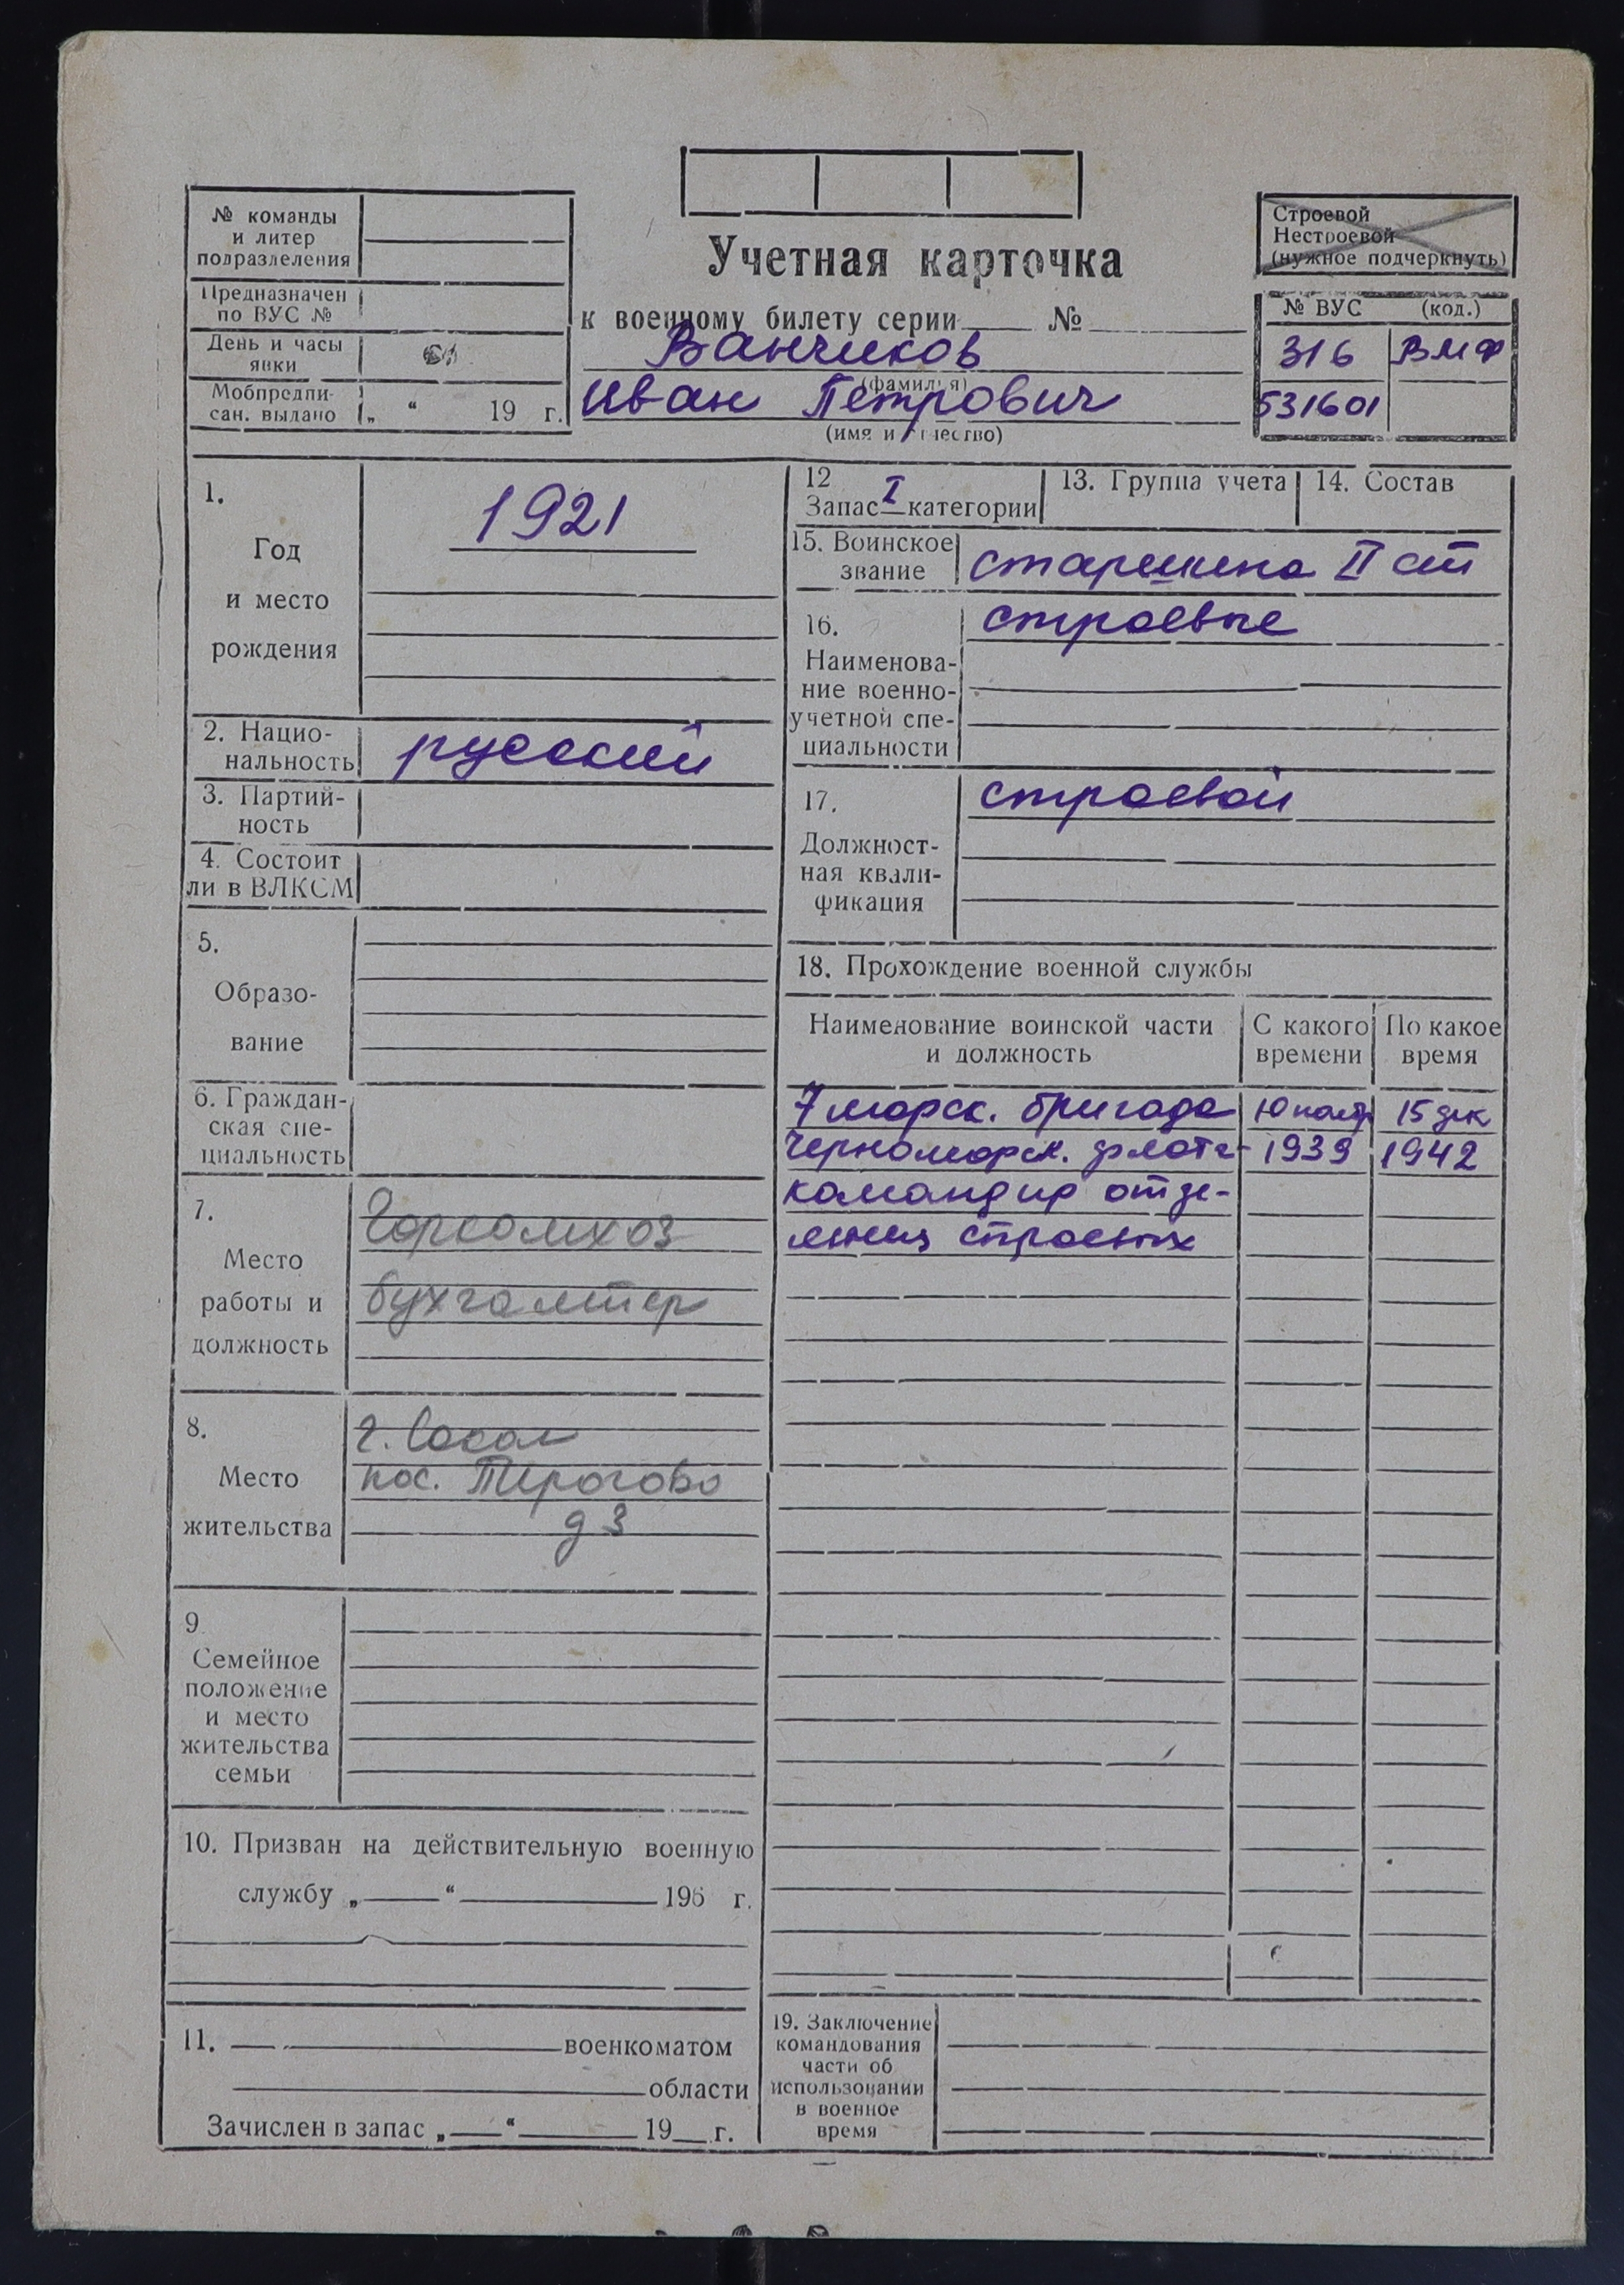 № команды
и литер
подразделения
Предназначен
по ВУС №
День и часы
явки
Мобпредпи-
сан. выдано „ “ 19 г.
Учетная карточка
к военному билету серии №
Ванчиков
(фамилия)
Иван Петрович
(имя и отчество)
Строевой
Нестроевой
(нужное подчеркнуть)
№ ВУС (код.)
316 ВМФ
531601
1.
Год
и место
рождения
1921
2. Нацио-
нальность
русский
3. Партий-
ность
4. Состоит
ли в ВЛКСМ
5.
Образо-
вание
6. Граждан-
ская спе-
циальность
7.
Место
работы и
должность
Горкомхоз
бухгалтер
8.
Место
жительства
г. Сокол
пос.
д 3
9
Семейное
положение
и место
жительства
семьи
10. Призван на действительную военную
службу „ “ 196 г.
11. военкоматом
области
Зачислен в запас „ “ 19 г.
12
Запас I категории
13. Группа учета
14. Состав
15. Воинское
звание
старшина II ст
16.
Наименова-
ние военно-
учетной спе-
циальности
строевые
17.
Должност-
ная квали-
фикация
строевой
18. Прохождение военной службы
Наименование воинской части
и должность
С какого
времени
По какое
время
7 морск. бригада 10 15 дек
Черноморск. флота- 1939 1942
командир отде-
ления строевых
19. Заключение
командования
части об
использовании
в военное
время